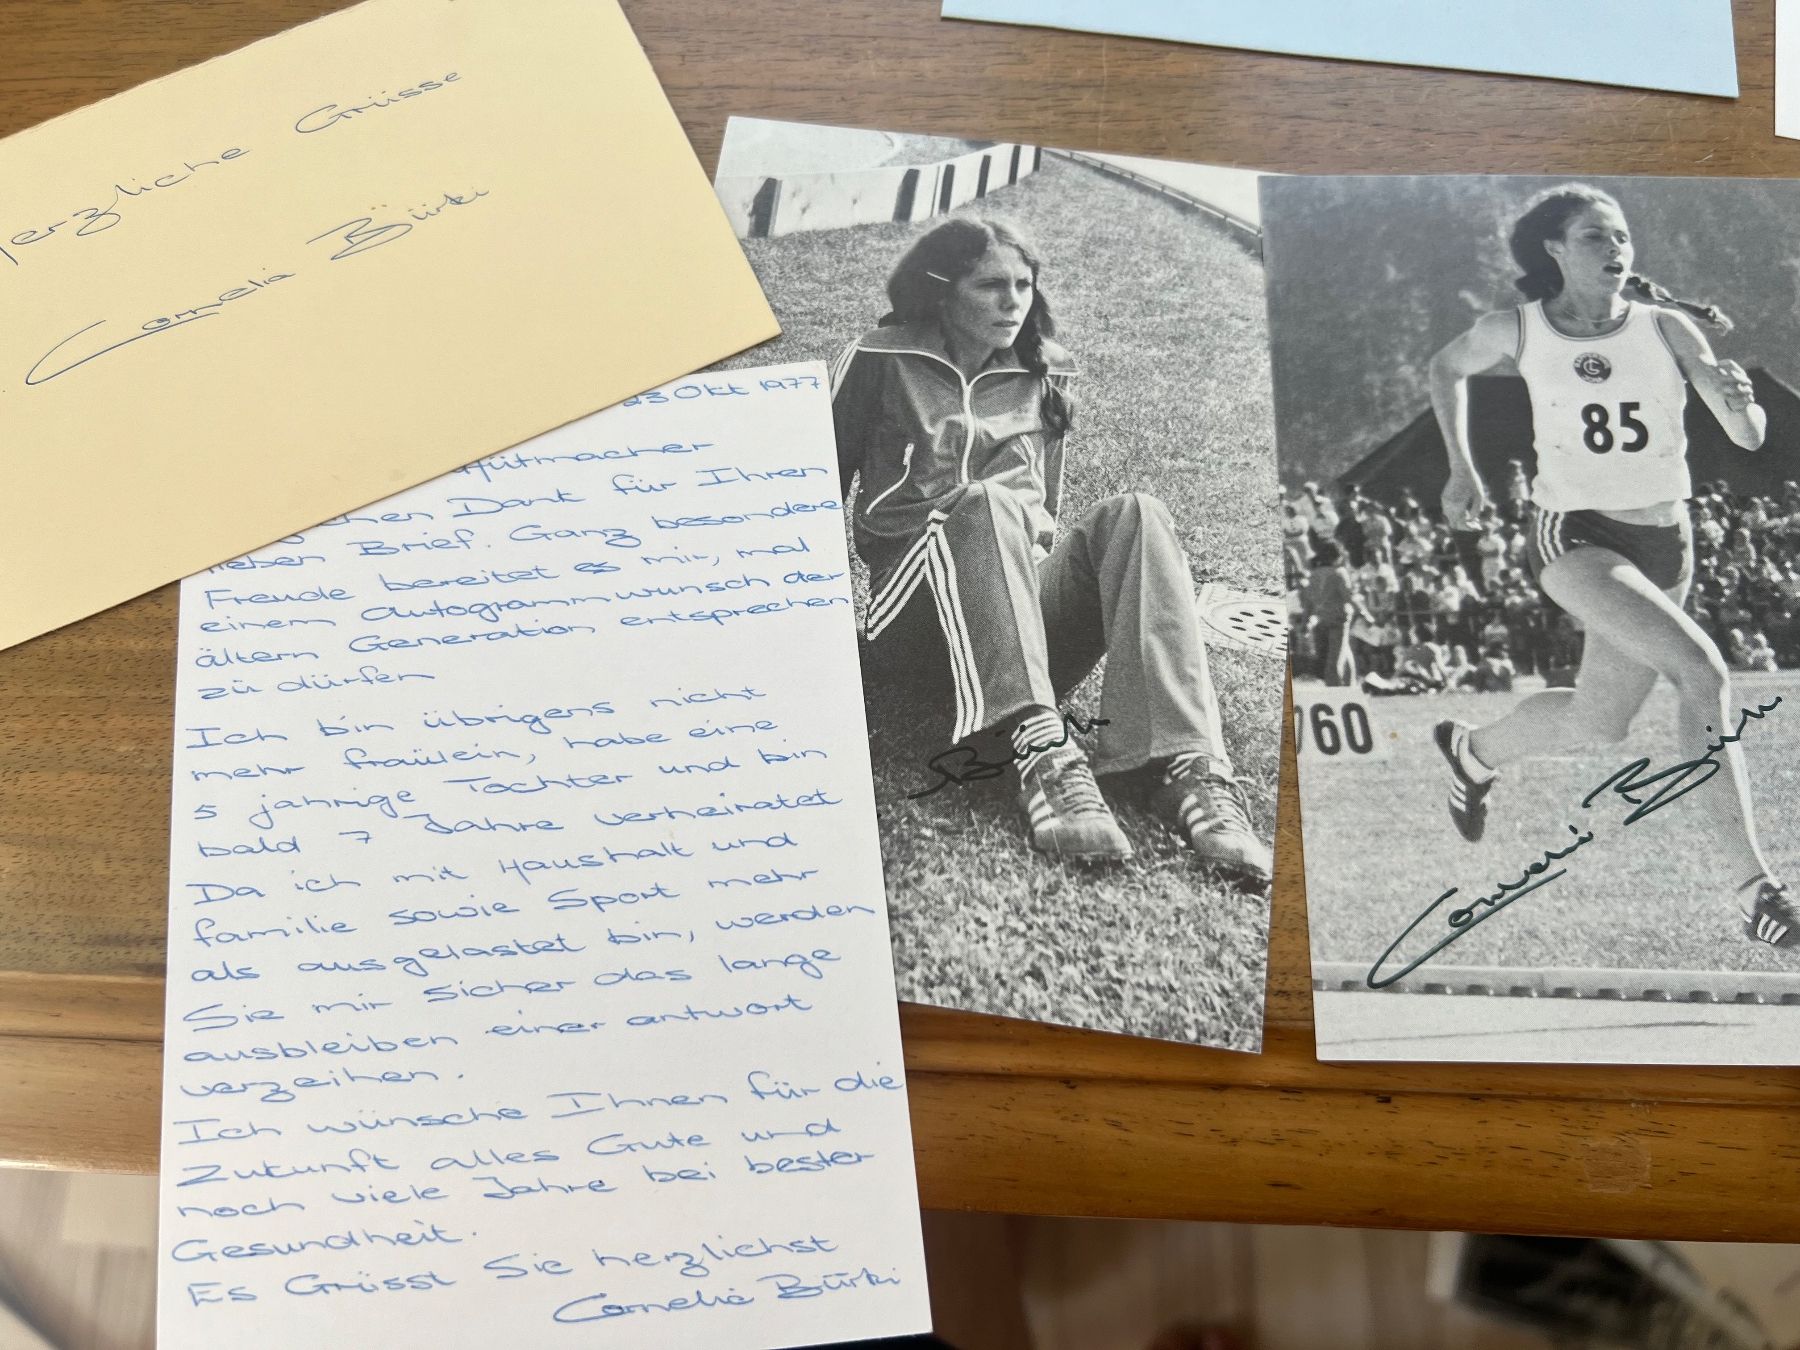 Herzliche Grüsse
Cornelia Bürki
23 Okt 1977
Hütmacher
chen Dank für Ihren
lieben Brief. Ganz besondere
Freude bereitet es mir, mal
einem Autogrammwunsch der
ältern Generation entsprechen
zü dürfen
Ich bin übrigens nicht
mehr fraülein, habe eine
5 jährige Tochter und bin
bald 7 Jahre verheiratet
Da ich mit Haushalt und
familie sowie Sport mehr
als ausgelastet bin, werden
Sie mir sicher das lange
ausbleiben einer antwort
verzeihen.
Ich wünsche Ihnen für die
Zukunft alles Gute und
noch viele Jahre bei bester
Gesundheit.
Es Grüsst Sie herzlichst
Cornelia Bürki
Bürki
85
060
Cornelia Bürki